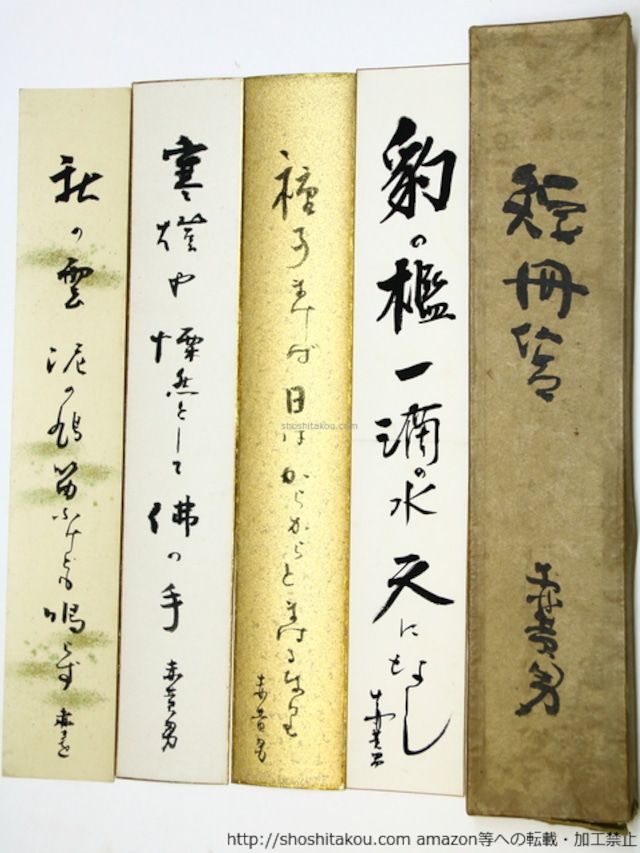 短冊筥
赤黄男
豹の檻一滴の水天になし
赤黄男
日はからからとまはるなり
赤黄男
寒燈や慄然として佛の手
赤黄男
秋の雲泥の鳩笛ふけども鳴らず
shoshitakou.com
http://shoshitakou.com amazon等への転載・加工禁止